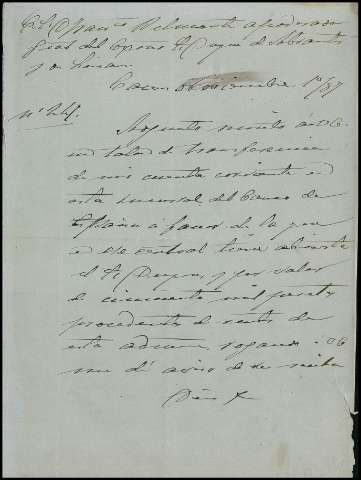 Belmonte apoderado
gral del Excmo Sr Duque de Abrantes
y de Linares
Diciembre 1º/87
Nº 245.
Adjunto remito á V.
un talon de transferencia
de mi cuenta corriente en
esta sucursal del Banco de
España á favor de la que
en esa central tiene abierta
el Sr Duque, y por valor
de cincuenta mil pesetas
procedente de rentas de
esta admon, rogando á V.
me dé aviso de su recibo
Dios